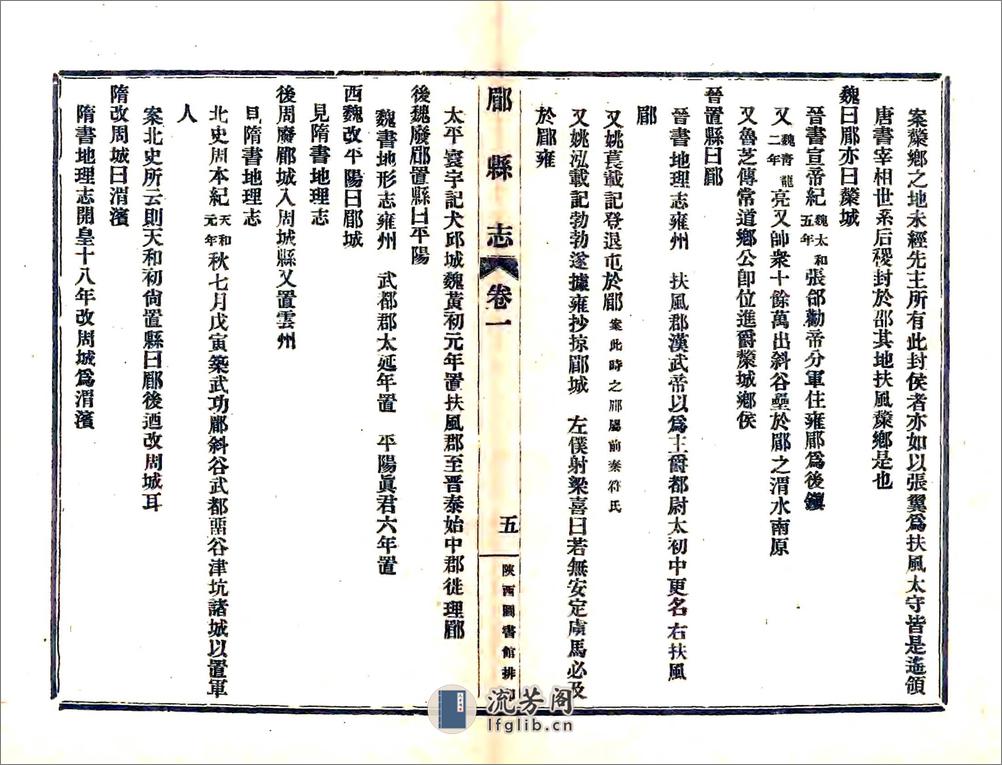 案斄鄉之地未經先主所有此封侯者亦如以張翼爲扶風太守皆是遙領
唐書宰相世系后稷封於邰其地扶風斄鄉是也
魏曰郿亦曰斄城
晉書宣帝紀魏太和五年張郃勸帝分軍住雍郿爲後鎭
又魏青龍二年亮又帥衆十餘萬出斜谷壘於郿之渭水南原
又魯芝傳常道鄉公卽位進爵斄城鄉侯
晉置縣曰郿
晉書地理志雍州 扶風郡漢武帝以爲主爵都尉太初中更名右扶風
郿
又姚萇載記登退屯於郿案此時之郿屬前秦符氏
又姚泓載記勃勃遂據雍抄掠郿城 左僕射梁喜曰若無安定虜馬必及
於郿雍
郿縣志
卷一
五
陝西圖書館排印
太平寰宇記犬邱城魏黃初元年置扶風郡至晉泰始中郡徙理郿
後魏廢郿置縣曰平陽
魏書地形志雍州 武都郡太延年置 平陽眞君六年置
西魏改平陽曰郿城
見隋書地理志
後周廢郿城入周城縣又置雲州
見隋書地理志
北史周本紀天和元年秋七月戊寅築武功郿斜谷武都谷津坑諸城以置軍
人
案北史所云則天和初尙置縣曰郿後迺改周城耳
隋改周城曰渭濱
隋書地理志開皇十八年改周城爲渭濱
流芳阁
lfglib.cn